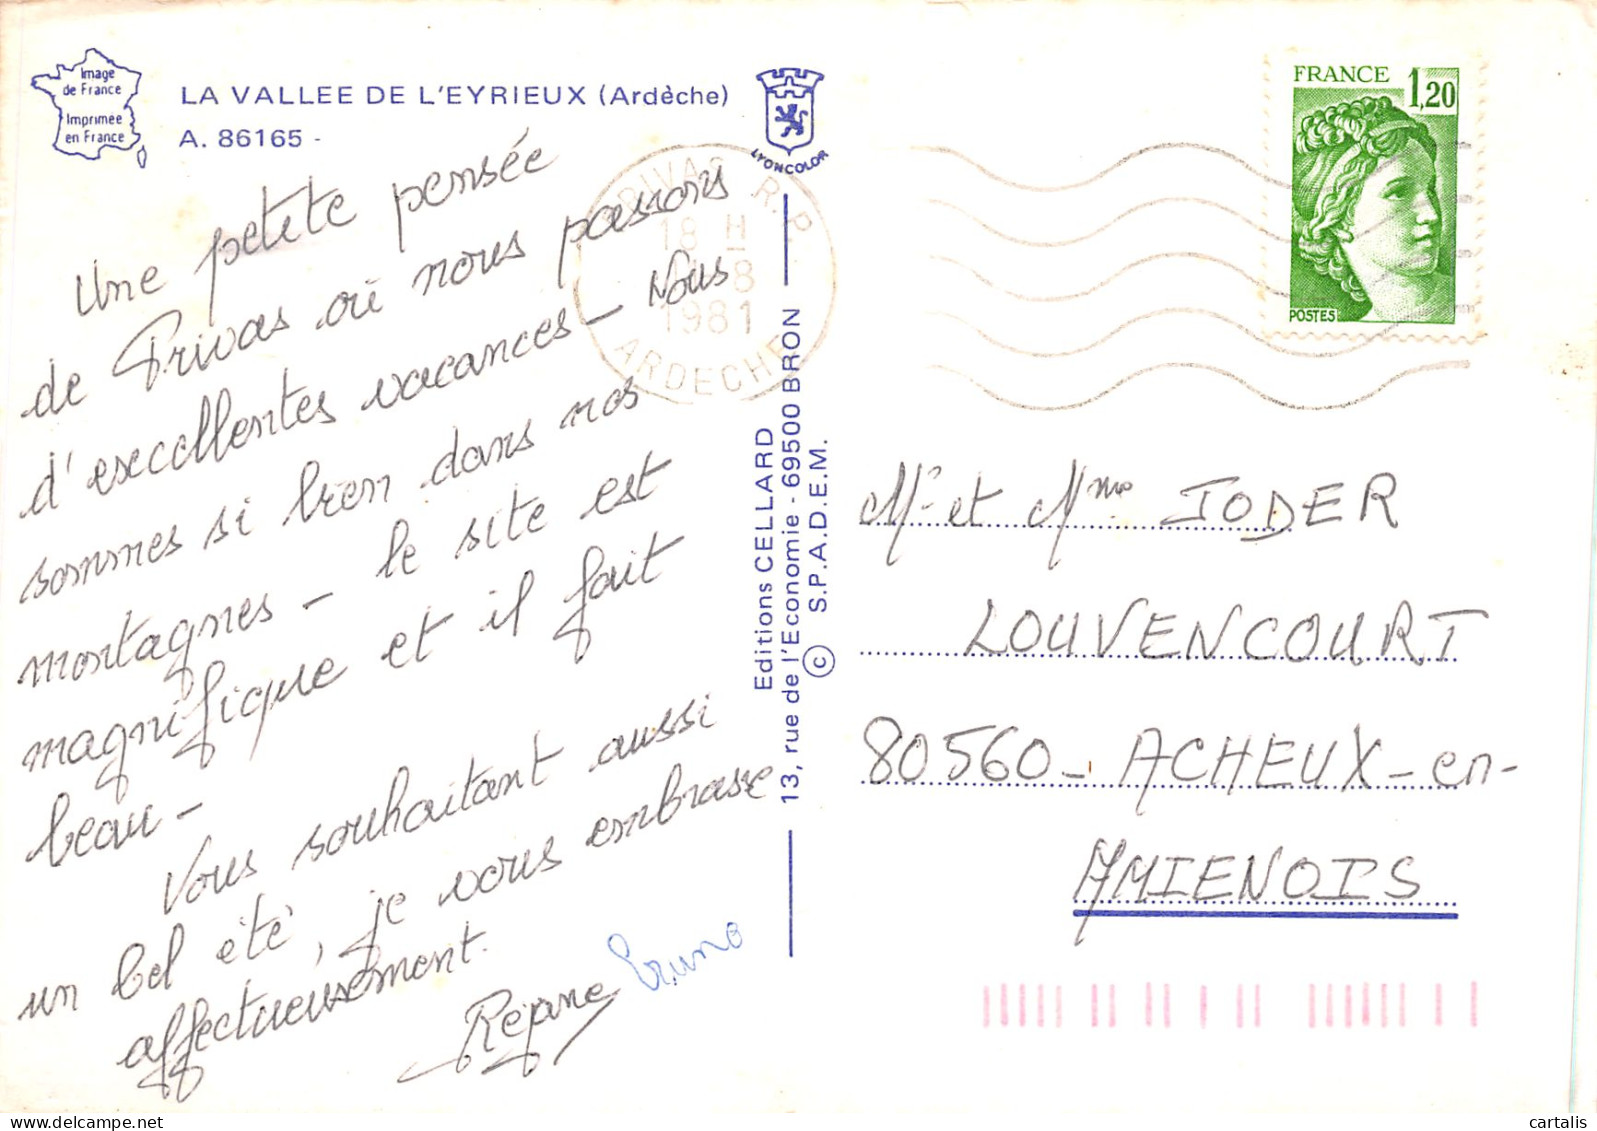 Image
de France
Imprimée
en France
LA VALLEE DE L'EYRIEUX (Ardèche)
A. 86165 -
LYONCOLOR
Une petite pensée
de Privas où nous passons
d'excellentes vacances - Nous
sommes si bien dans nos
montagnes - le site est
magnifique et il fait
beau -
Vous souhaitant aussi
un bel été, je vous embrasse
affectueusement.
Réjane Bruno
PRIVAS R.P.
18 H
8
1981
ARDECHE
Editions CELLARD
13, rue de l'Economie - 69500 BRON
© S.P.A.D.E.M.
FRANCE 1,20
POSTES
Mr et Mme JODER
LOUVENCOURT
80560 - ACHEUX-en-
AMIENOIS
cartalis